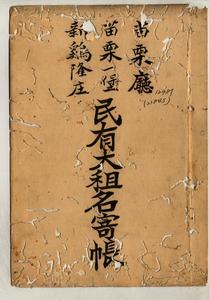 苗栗廳
苗栗一堡
新雞隆庄
民有大租名寄帳
12907
(21045)